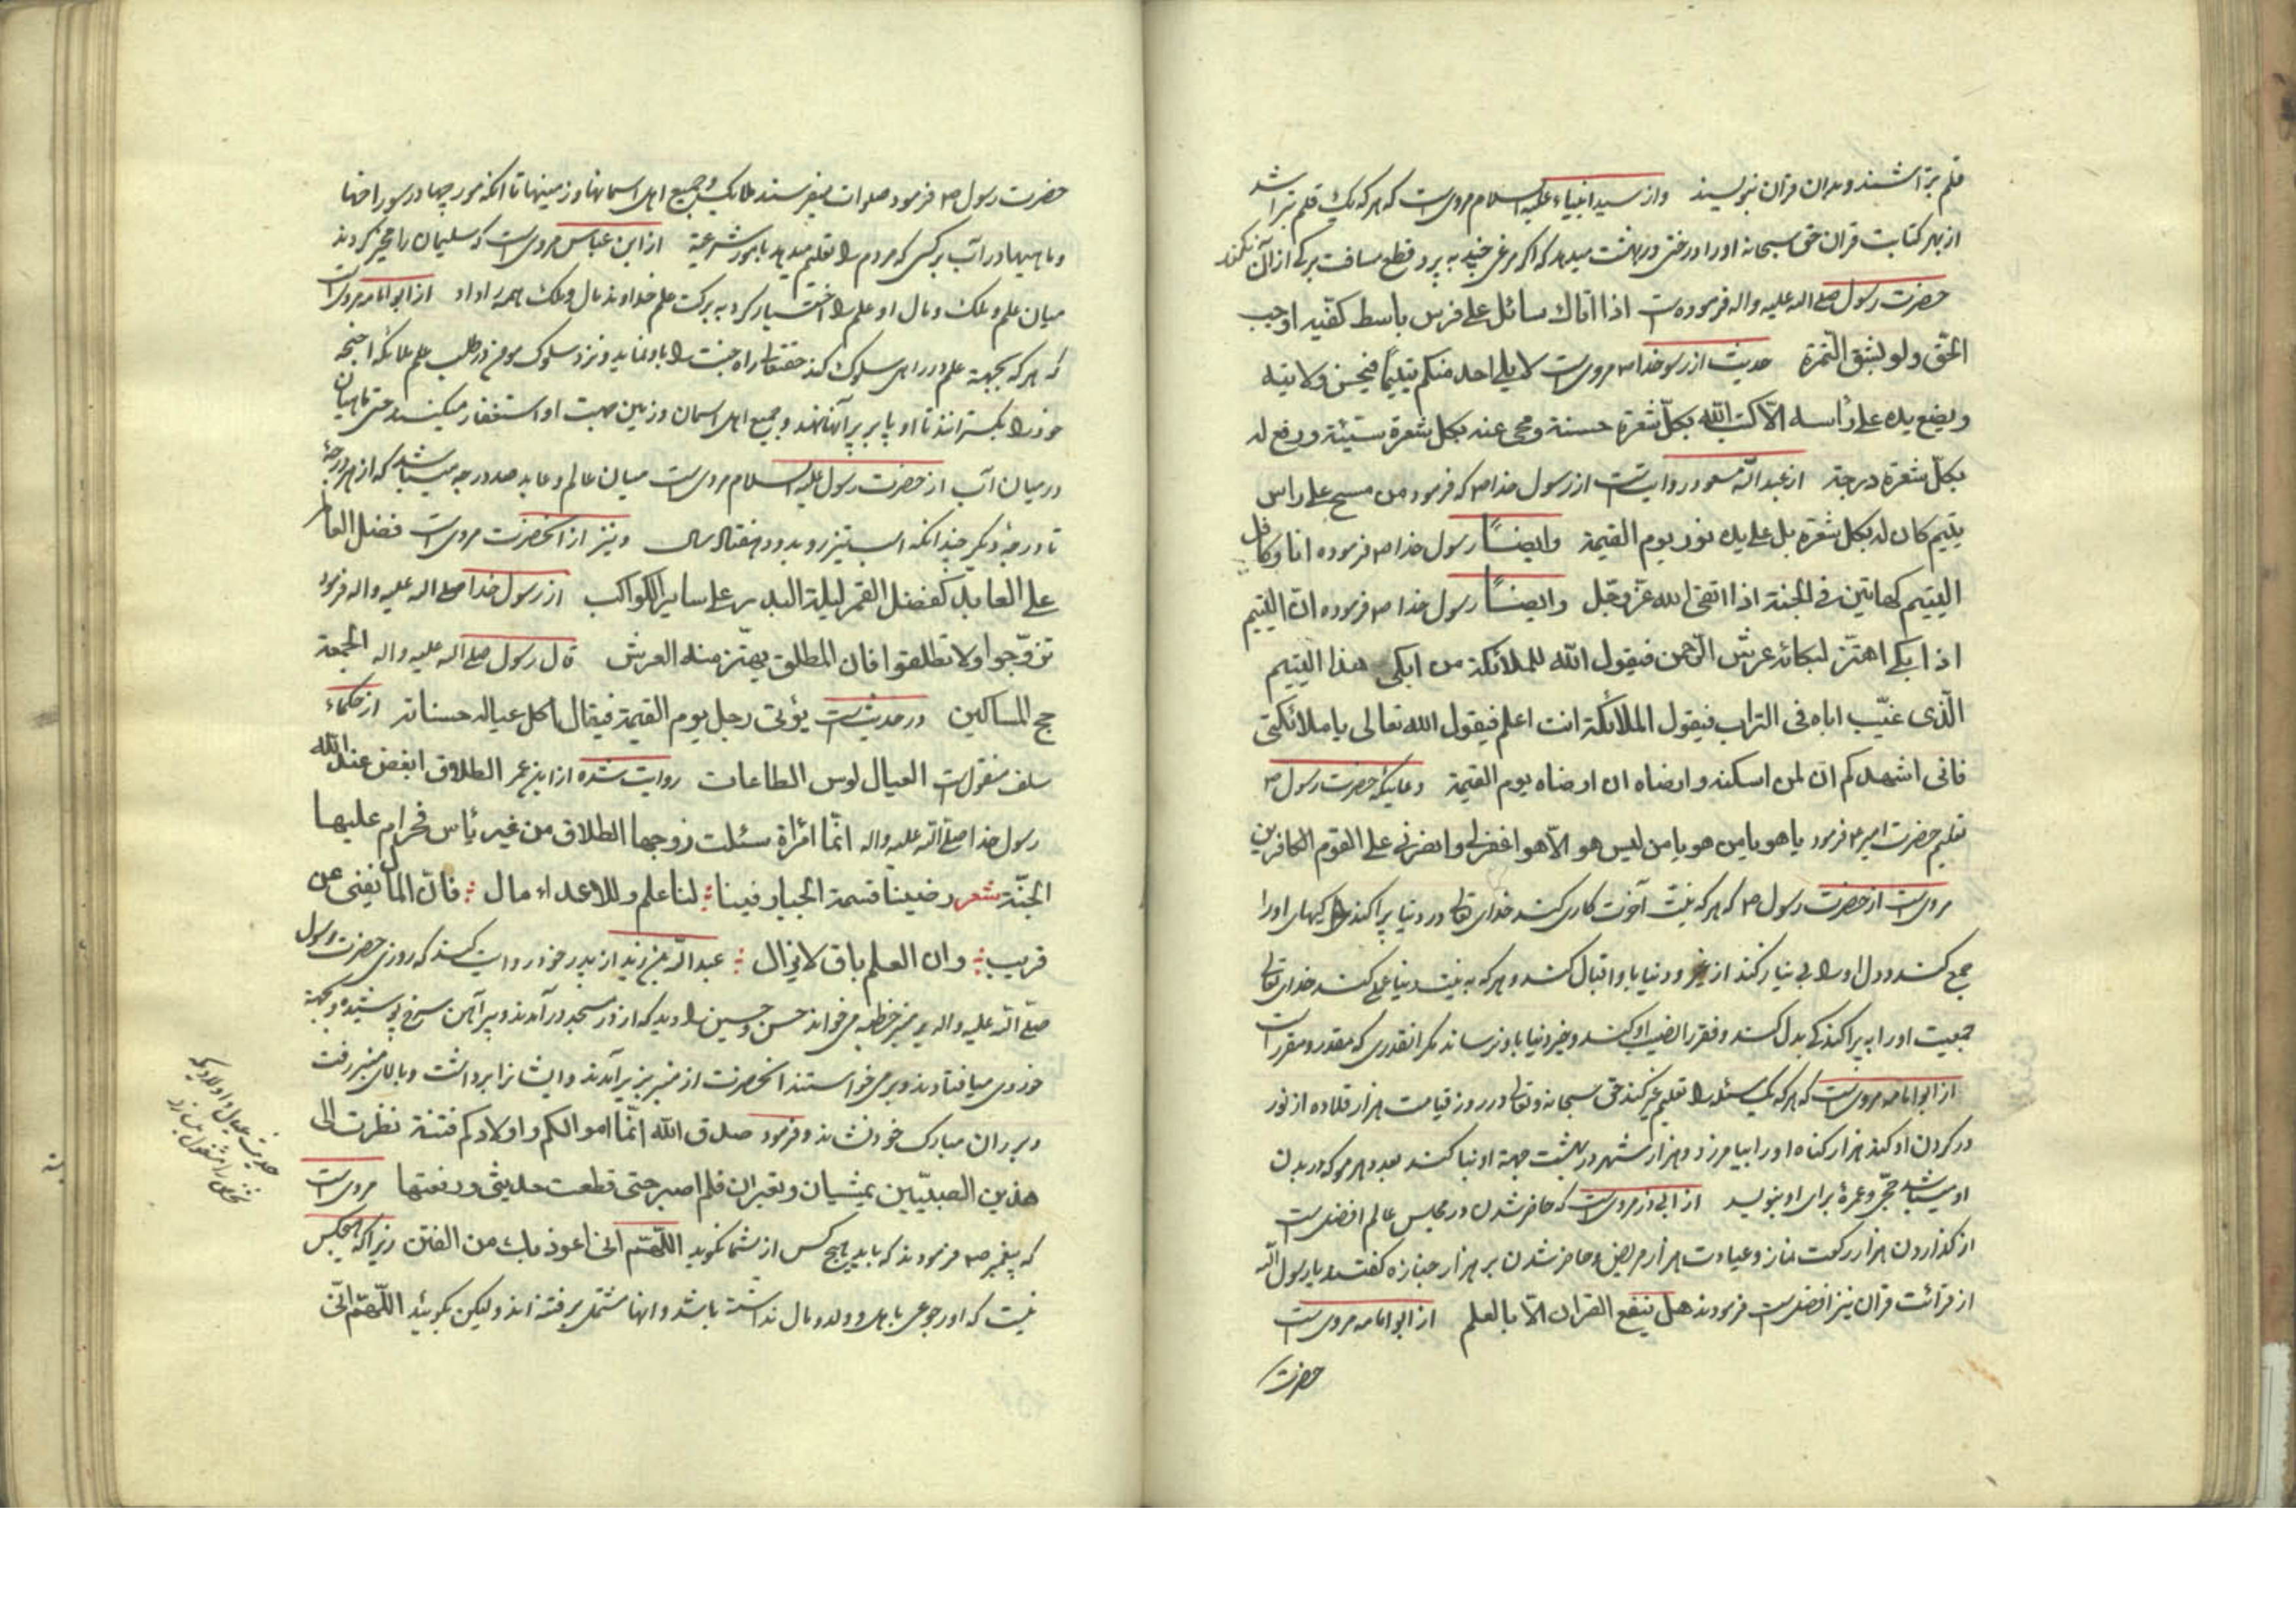 قلم بتراشند و بدان قران بنویسند واز سید انبیاء علیه السلام مرویست که هرکه یک قلم بتراشد
از بهر کتابت قران حق سبحانه اورا درختی در بهشت میدهد که اکر مرغی به پرد قطع مسافت برکی از آن نکند
حضرت رسول صلی اله علیه واله فرموده است اذا اتاک سائل علی فرس باسط کفیه اوجب
الحق ولو بشق التمرة حدیث از رسول خدا ص مرویست لا یلی احد منکم یتیما فیحسن ولایته
ویضع یده علی رأسه الا کتب الله بکل شعرة حسنة ومحی عنه بکل شعرة سیئة ورفع له
بکل شعرة درجة از عبد الله مسعود روایتست از رسول خدا ص که فرمود من مسح علی راس
یتیم کان له بکل شعرة بل علی یده نور یوم القیمة وایضا رسول خدا ص فرموده انا وکافل
الیتیم کهاتین فی الجنة اذا اتقی الله عز وجل وایضا رسول خدا ص فرموده ان الیتیم
اذا بکی اهتز لبکائه عرش الرحمن فیقول الله للملائکة من ابکی هذا الیتیم
الذی غیب اباه فی التراب فیقول الملائکة انت اعلم فیقول الله تعالی یا ملائکتی
فانی اشهدکم ان لمن اسکته وارضاه ان ارضاه یوم القیمة دعائیکه حضرت رسول ص
تعلیم حضرت امیر ع فرمود یا هو یا من هو یا من لیس هو الا هو اغفر لی وانصرنی علی القوم الکافرین
مرویست از حضرت رسول ص که هرکه نیت آخرت کاری کند خدای تعالی در دنیا پراکندکیهای اورا
جمع کند و دل اورا بی نیاز کند از غیر و دنیا باو اقبال کند و هرکه به نیت دنیا عملی کند خدای تعالی
جمعیت اورا به پراکندکی بدل کند و فقر را نصیب او کند و چیز دنیا باو نرساند مکر انقدری که مقدر و مقرر است
از ابو امامه مرویست که هرکه یک مسئله را تعلیم غیر کند حق سبحانه و تعالی در روز قیامت هزار قلاده از نور
در کردن او کند و هزار کناه اورا بیامرزد و هزار شهر در بهشت جهة او بنا کند و بعدد هر مو که در بدن
او میباشد حجی و عمرة برای او بنویسد از ابی ذر مرویست که حاضر شدن در مجلس عالم افضلست
از کذاردن هزار رکعت نماز و عیادت هزار مریض و حاضر شدن بر هزار جنازه کفتند یا رسول الله
از قرائت قران نیز افضلست فرمودند هل ینفع القران الا بالعلم از ابو امامه مرویست
حضرت
حضرت رسول ص فرمود صلوات میفرستند ملائکه و جمیع اهل اسمانها و زمینها تا انکه مورچها در سوراخها
و ماهیها در آب بر کسی که مردم را تعلیم میدهد بامور شرعیة از ابن عباس مرویست که سلیمان را مخیر کردند
میان علم و ملک و مال او علم را اختیار کرد به برکت علم خداوند مال و ملک بهمراه داد از ابو امامه مرویست
که هرکه بجهة علم در راهی سلوک کند حقتعالی راه جنت را باو نماید و نزد سلوک مومن در طلب علم ملائکه اجنحه
خود را بکسترانند تا او پا بر پر آنها نهند و جمیع اهل اسمان و زمین جهت او استغفار میکنند حتی ماهیان
در میان آب از حضرت رسول علیه السلام مرویست میان عالم و عابد صد درجه میباشد که از هر درجهٔ
تا درجهٔ دیکر چندانکه اسب تیز رو بدود هفتاد سال ونیز از انحضرت مرویست فضل العالم
علی العابد کفضل القمر لیلة البدر علی سایر الکواکب از رسول خدا صلی اله علیه واله فرمود
تزوجوا ولا تطلقوا فان المطلق یهتز منه العرش قال رسول صلی اله علیه واله الجمعة
حج المساکین در حدیث است یؤتی رجل یوم القیمة فیقال اکل عیاله حسناته از حکماء
سلف منقولست العیال سوس الطاعات روایت شده از ابن عمر الطلاق ابغض عند الله
رسول خدا صلی الله علیه واله انما امرأة سئلت زوجها الطلاق من غیر بأس فحرام علیها
الجنة شعر رضینا قسمة الجبار فینا لنا علم وللاعداء مال فان المال یفنی عن
قریب وان العلم باق لا یزال عبد الله بن زید از پدر خود روایت کند که روزی حضرت رسول
صلی الله علیه واله بر منبر خطبه میخواند حسن و حسین را دید که از در مسجد درآمدند و پیراهن سرخ پوشیده و بجهة
خوردی میافتادند و برمیخواستند انحضرت از منبر بزیر آمدند و ایشانرا برداشت و بالای منبر رفت
و بر ران مبارک خود نشاند و فرمود صدق الله انما اموالکم واولادکم فتنة نظرت الی
هذین الصبیین یمشیان ویعثران فلم اصبر حتی قطعت حدیثی ورفعتهما مرویست
که پیغمبر ص فرمودند که باید هیچ کس از شما نکوید اللهم انی اعوذ بک من الفتن زیرا که هیچکس
نیست که اورا جوعی با اهل و ولد و مال نداشته باشد و انها مشتمل بر فتنه اند ولیکن بکوئید اللهم انی